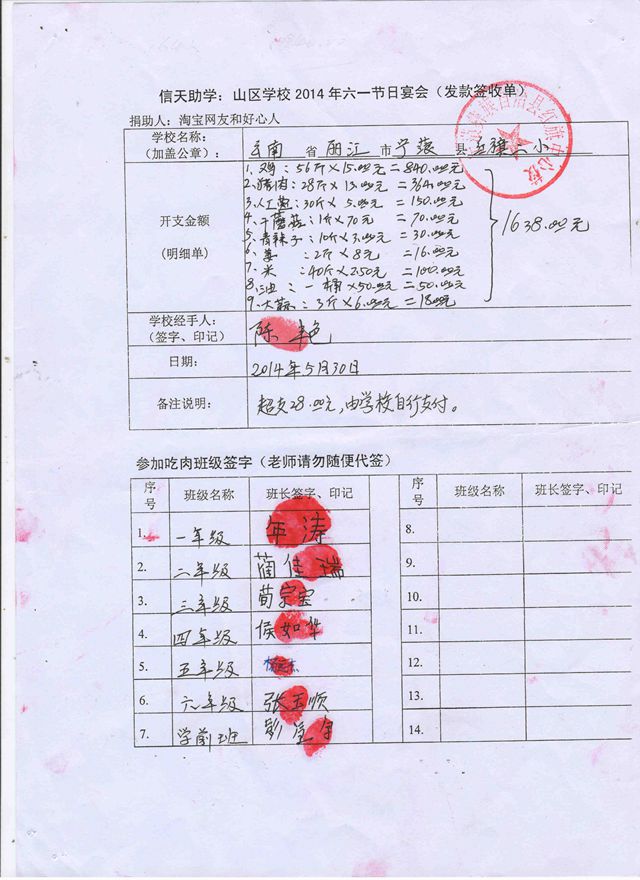 信天助学：山区学校 2014 年六一节日宴会（发款签收单）
捐助人：淘宝网友和好心人
学校名称：
（加盖公章）：
云南 省 丽江 市 宁蒗 县 完小
红旗中心校
开支金额
(明细单)
1、鸡：56斤×15.00元=840.00元
2、猪肉：28斤×13.00元=364.00元
3、 30斤×5.00元=150.00元
4、干蘑菇：1斤×70元=70.00元
5、青辣子：10斤×3.00元=30.00元
6、姜：2斤×8元=16.00元
7、米：40斤×2.50元=100.00元
8、油：一桶×50.00元=50.00元
9、大蒜：3斤×6.00元=18.00元
1638.00元
学校经手人：
（签字、印记）
陈 艳
日期：
2014年5月30日
备注说明：
超支28.00元,由学校自行支付。
参加吃肉班级签字（老师请勿随便代签）
序号 班级名称 班长签字、印记 序号 班级名称 班长签字、印记
1. 一年级 涛 8.
2. 二年级 蔺佳瑞 9.
3. 三年级 荀宗宝 10.
4. 四年级 侯如华 11.
5. 五年级 12.
6. 六年级 张玉顺 13.
7. 学前班 彭 14.